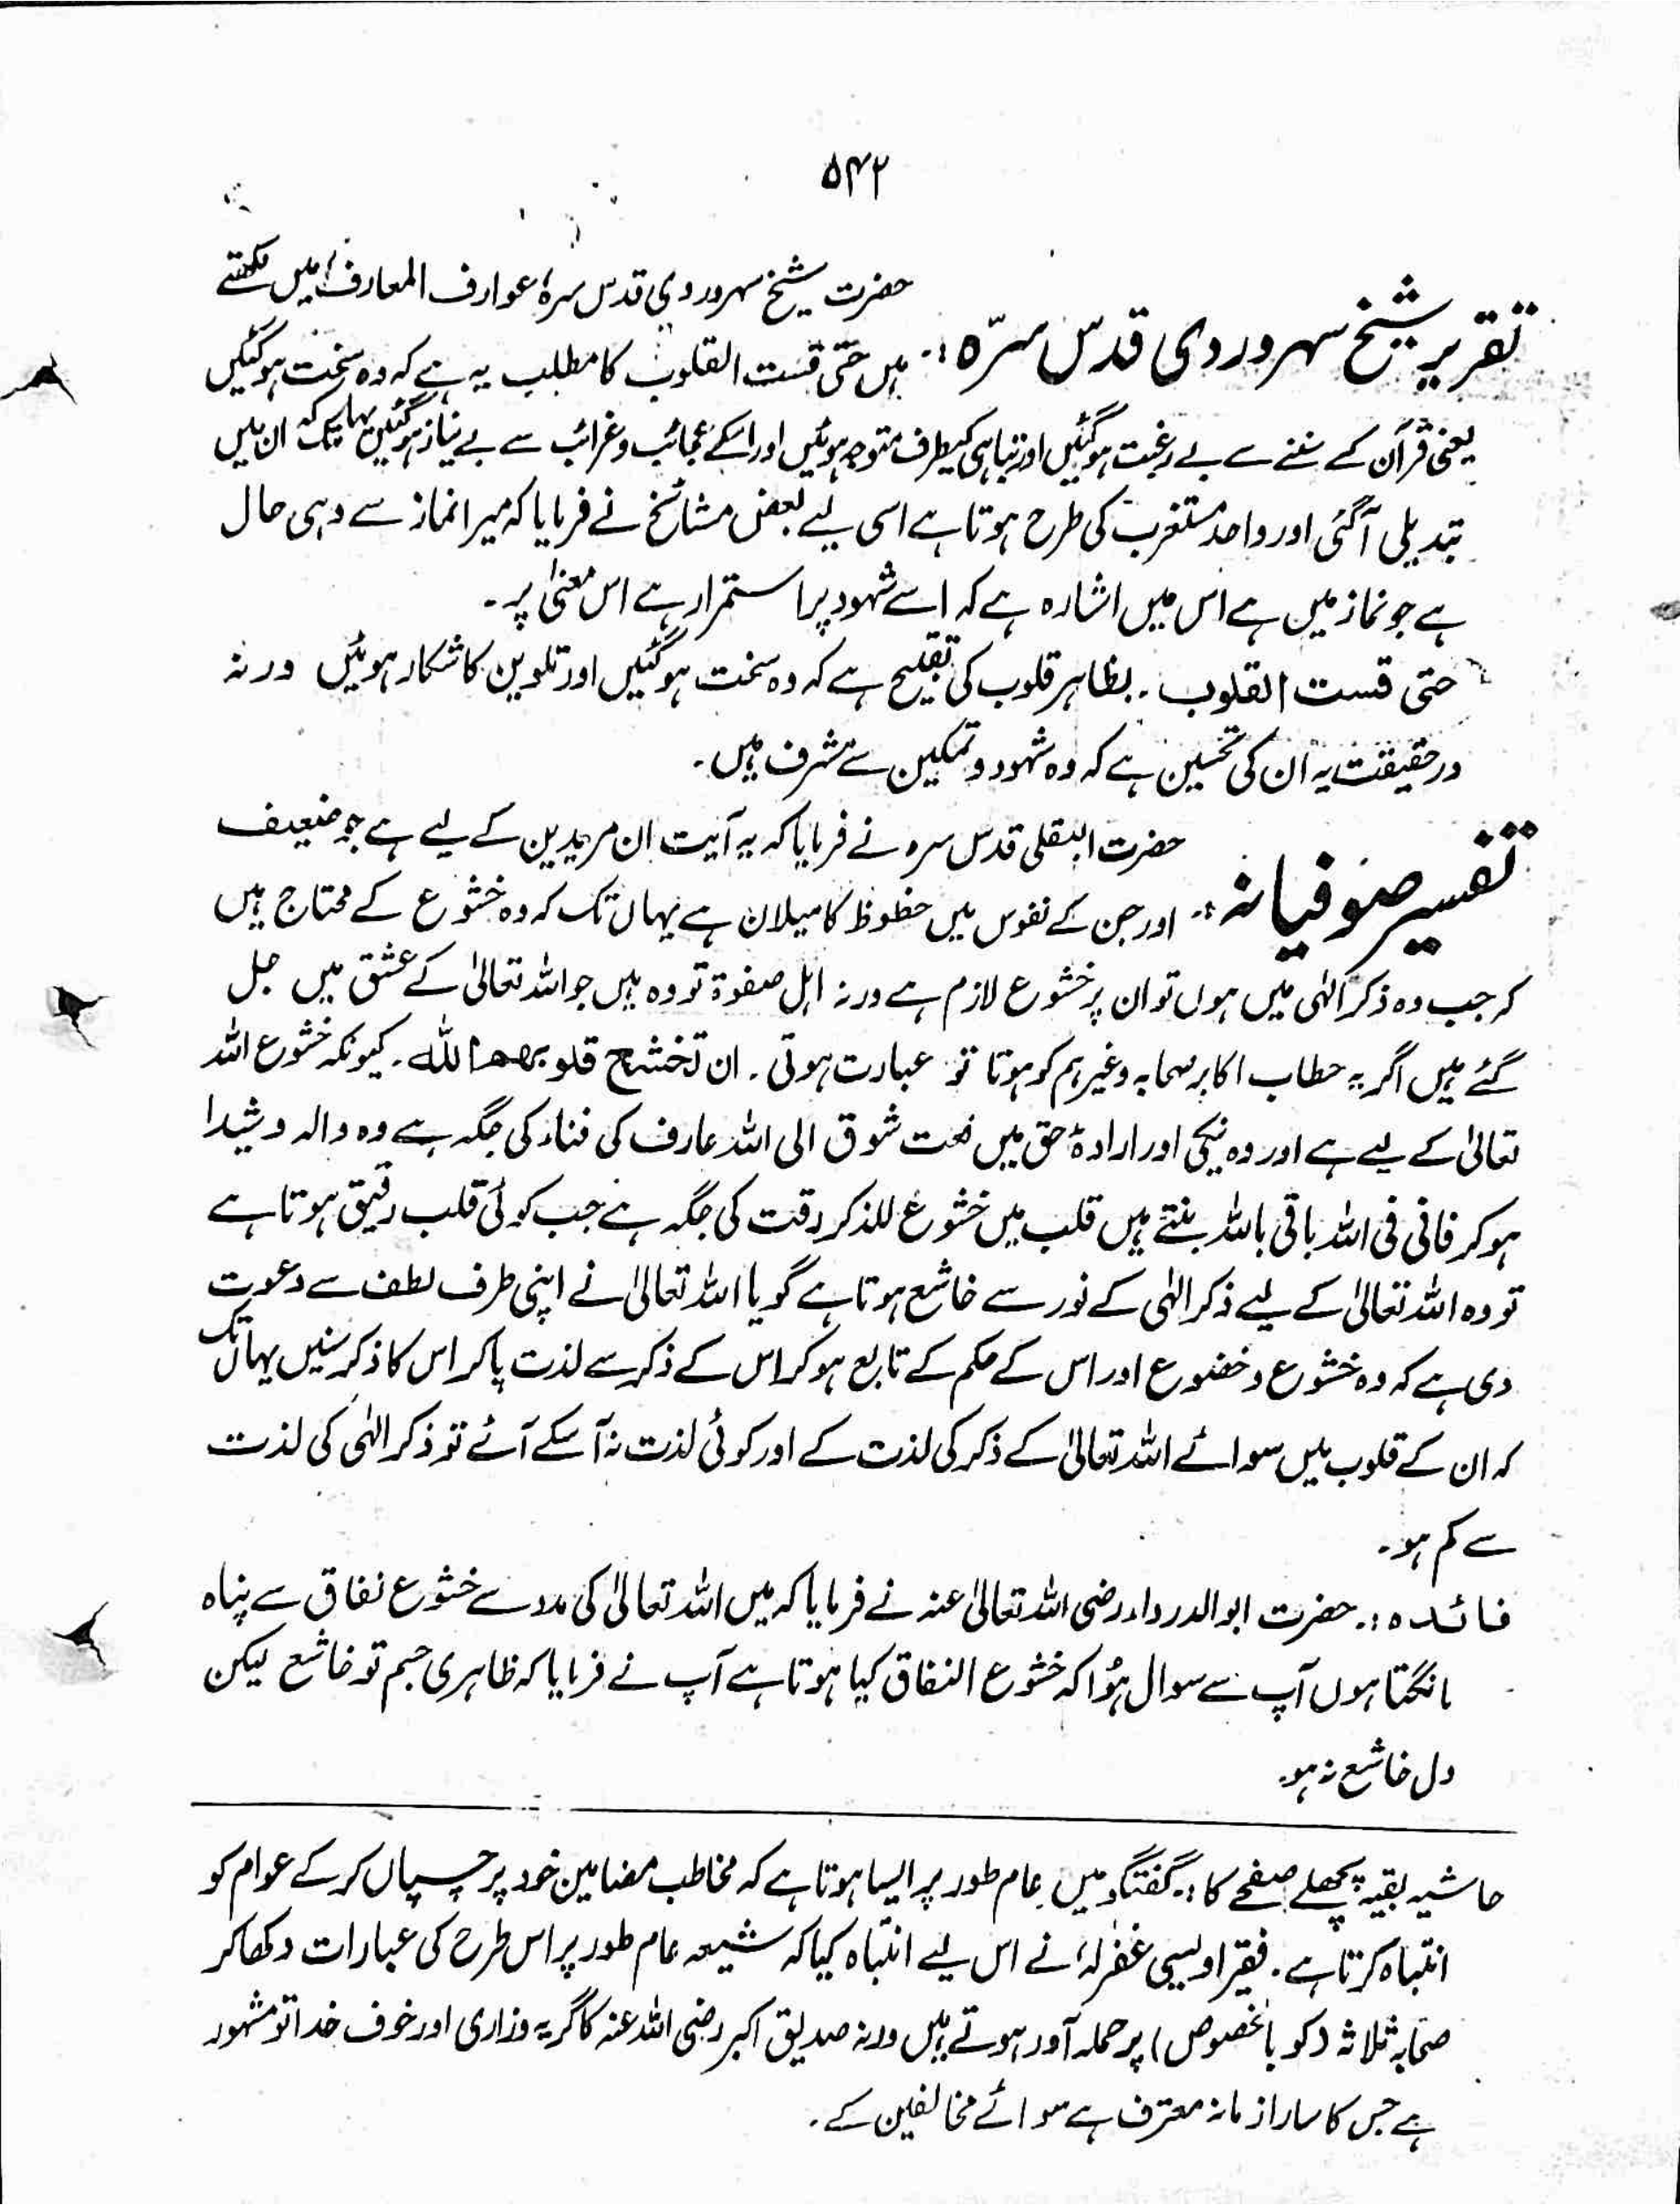 ۵۴۲
تقریر شیخ سہروردی قدس سرّہ :۔ حضرت شیخ سہروردی قدس سرہٗ عوارف المعارف میں لکھتے
ہیں حتّٰی قست القلوب کا مطلب یہ ہے کہ وہ سخت ہوگئیں
یعنی قرآن کے سننے سے بے رغبت ہوگئیں اور تباہی کیطرف متوجہ ہوئیں اور اسکے عجائب و غرائب سے بے نیاز ہوگئیں یہاں تک کہ ان میں
تبدیلی آگئی اور واحد مستغرب کی طرح ہوتا ہے اسی لیے بعض مشائخ نے فرمایا کہ میرا نماز سے وہی حال
ہے جو نماز میں ہے اس میں اشارہ ہے کہ اسے شہود پر استمرار ہے اس معنیٰ پر ۔
حتی قست القلوب ۔ بظاہر قلوب کی تقبیح ہے کہ وہ سخت ہوگئیں اور تلوین کا شکار ہوئیں ورنہ
درحقیقت یہ ان کی تحسین ہے کہ وہ شہود و تمکین سے مشرف ہیں ۔
تفسیر صوفیانہ :۔ حضرت البقلی قدس سرہ نے فرمایا کہ یہ آیت ان مریدین کے لیے ہے جو ضعیف
اور جن کے نفوس میں حظوظ کا میلان ہے یہاں تک کہ وہ خشوع کے محتاج ہیں
کہ جب وہ ذکر الٰہی میں ہوں تو ان پر خشوع لازم ہے ورنہ اہل صفوۃ تو وہ ہیں جو اللہ تعالیٰ کے عشق میں جل
گئے ہیں اگر یہ خطاب اکابر صحابہ وغیرہم کو ہوتا تو عبارت ہوتی ۔ ان تخشع قلوبھم اللہ ۔ کیونکہ خشوع اللہ
تعالیٰ کے لیے ہے اور وہ نیکی اور ارادۂ حق میں نعت شوق الی اللہ عارف کی فناء کی جگہ ہے وہ والہ و شیدا
ہوکر فانی فی اللہ باقی باللہ بنتے ہیں قلب میں خشوع للذکر رقت کی جگہ ہے جب کوئی قلب رقیق ہوتا ہے
تو وہ اللہ تعالیٰ کے لیے ذکر الٰہی کے نور سے خاشع ہوتا ہے گویا اللہ تعالیٰ نے اپنی طرف لطف سے دعوت
دی ہے کہ وہ خشوع و خضوع اور اس کے حکم کے تابع ہوکر اس کے ذکر سے لذت پاکر اس کا ذکر سنیں یہاں تک
کہ ان کے قلوب میں سوائے اللہ تعالیٰ کے ذکر کی لذت کے اور کوئی لذت نہ آسکے آئے تو ذکر الٰہی کی لذت
سے کم ہو ۔
فائدہ :۔ حضرت ابوالدرداء رضی اللہ تعالیٰ عنہ نے فرمایا کہ میں اللہ تعالیٰ کی مدد سے خشوع نفاق سے پناہ
مانگتا ہوں آپ سے سوال ہوا کہ خشوع النفاق کیا ہوتا ہے آپ نے فرمایا کہ ظاہری جسم تو خاشع لیکن
دل خاشع نہ ہو ۔
حاشیہ بقیہ پچھلے صفحے کا :۔ گفتگو میں عام طور پر ایسا ہوتا ہے کہ مخاطب مضامین خود پر چسپاں کرکے عوام کو
انتباہ کرتا ہے ۔ فقیر اویسی غفرلہٗ نے اس لیے انتباہ کیا کہ شیعہ عام طور پر اس طرح کی عبارات دکھاکر
صحابہ ثلاثہ (کو بالخصوص) پر حملہ آور ہوتے ہیں ورنہ صدیق اکبر رضی اللہ عنہ کا گریہ وزاری اور خوف خدا تو مشہور
ہے جس کا سارا زمانہ معترف ہے سوائے مخالفین کے ۔